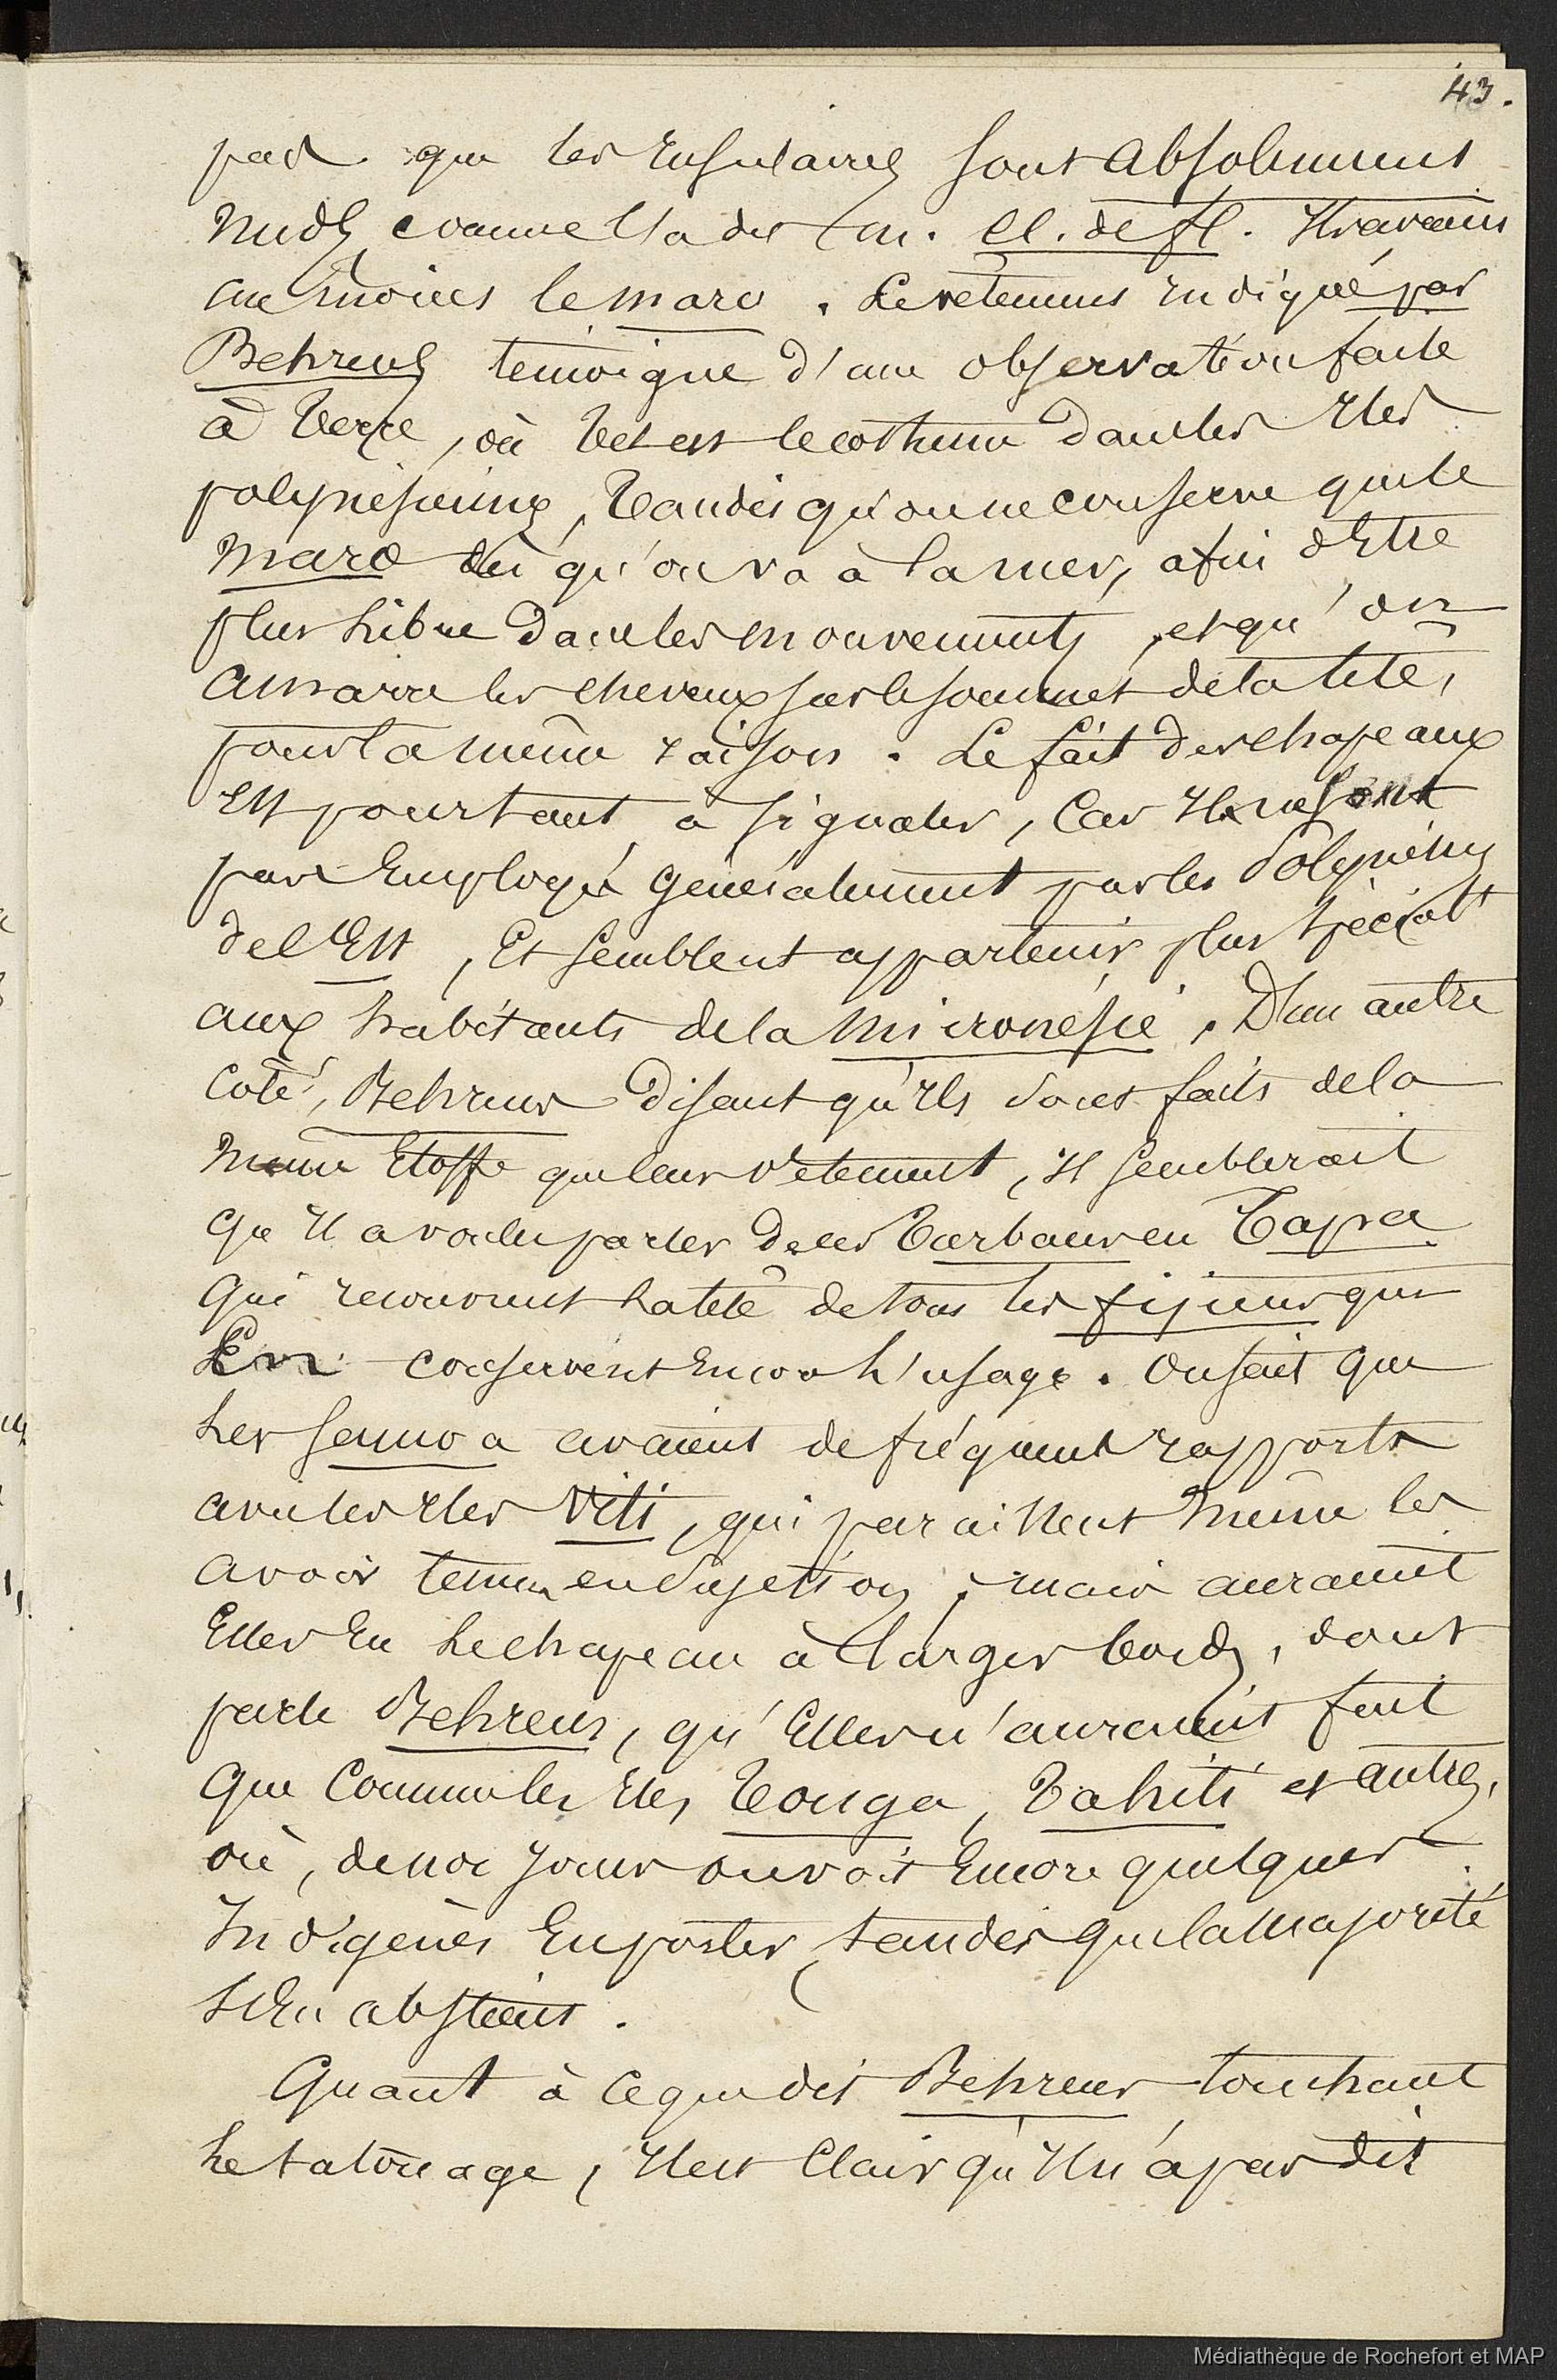 43.
pas que les Insulaires sont absolument
nuds comme l'a dit m. Cl. de fl. Ils avaient
au moins le maro. Le vêtement indiqué par
Behrens témoigne d'une observation faite
à terre, où tel est le costume dans les Iles
polynésiennes, tandis qu'on ne conserve que le
maro dès qu'on va à la mer, afin d'Etre
plus Libre dans les mouvements, et qu'on
amarre les cheveux sur le sommet de la tête,
pour la même raison. Le fait des chapeaux
Est pourtant à signaler, Car Ils ne sont
pas Employés généralement par les Polynésiens
de l'Est, Et semblent appartenir plus spécialt
aux habitants de la Micronésie. D'un autre
coté, Behrens disant qu'Ils sont faits de la
même Etoffe que leur vêtement, Il semblerait
qu'Il a voulu parler de ces Turbans en Tapa
qui recouvrent La tête de tous les fijiens qui
En conservent Encore L'usage. On sait que
Les Samoa avaient de fréquents rapports
avec les Iles Viti, qui paraissent même les
avoir tenues en sujétion; mais auraient
Elles Eu Le chapeau à larges bords, dont
parle Behrens, qu'Elles n'auraient fait
que Comme les Iles Tonga, Tahiti et autres,
où, de nos jours on voit Encore quelques
Indigènes En porter, tandis que la majorité
s'En abstient.
Quant à ce que dit Behrens touchant
Le tatouage, Il est Clair qu'Il n'a pas dit
Médiathèque de Rochefort et MAP